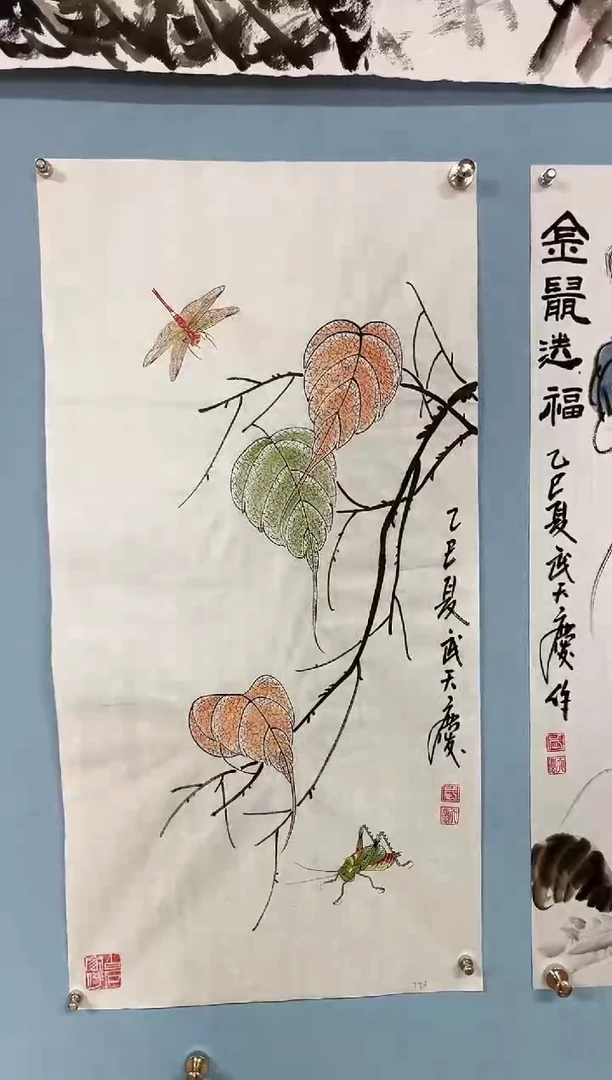 乙巳夏武天庆
金鼠送福
乙巳夏武天庆作